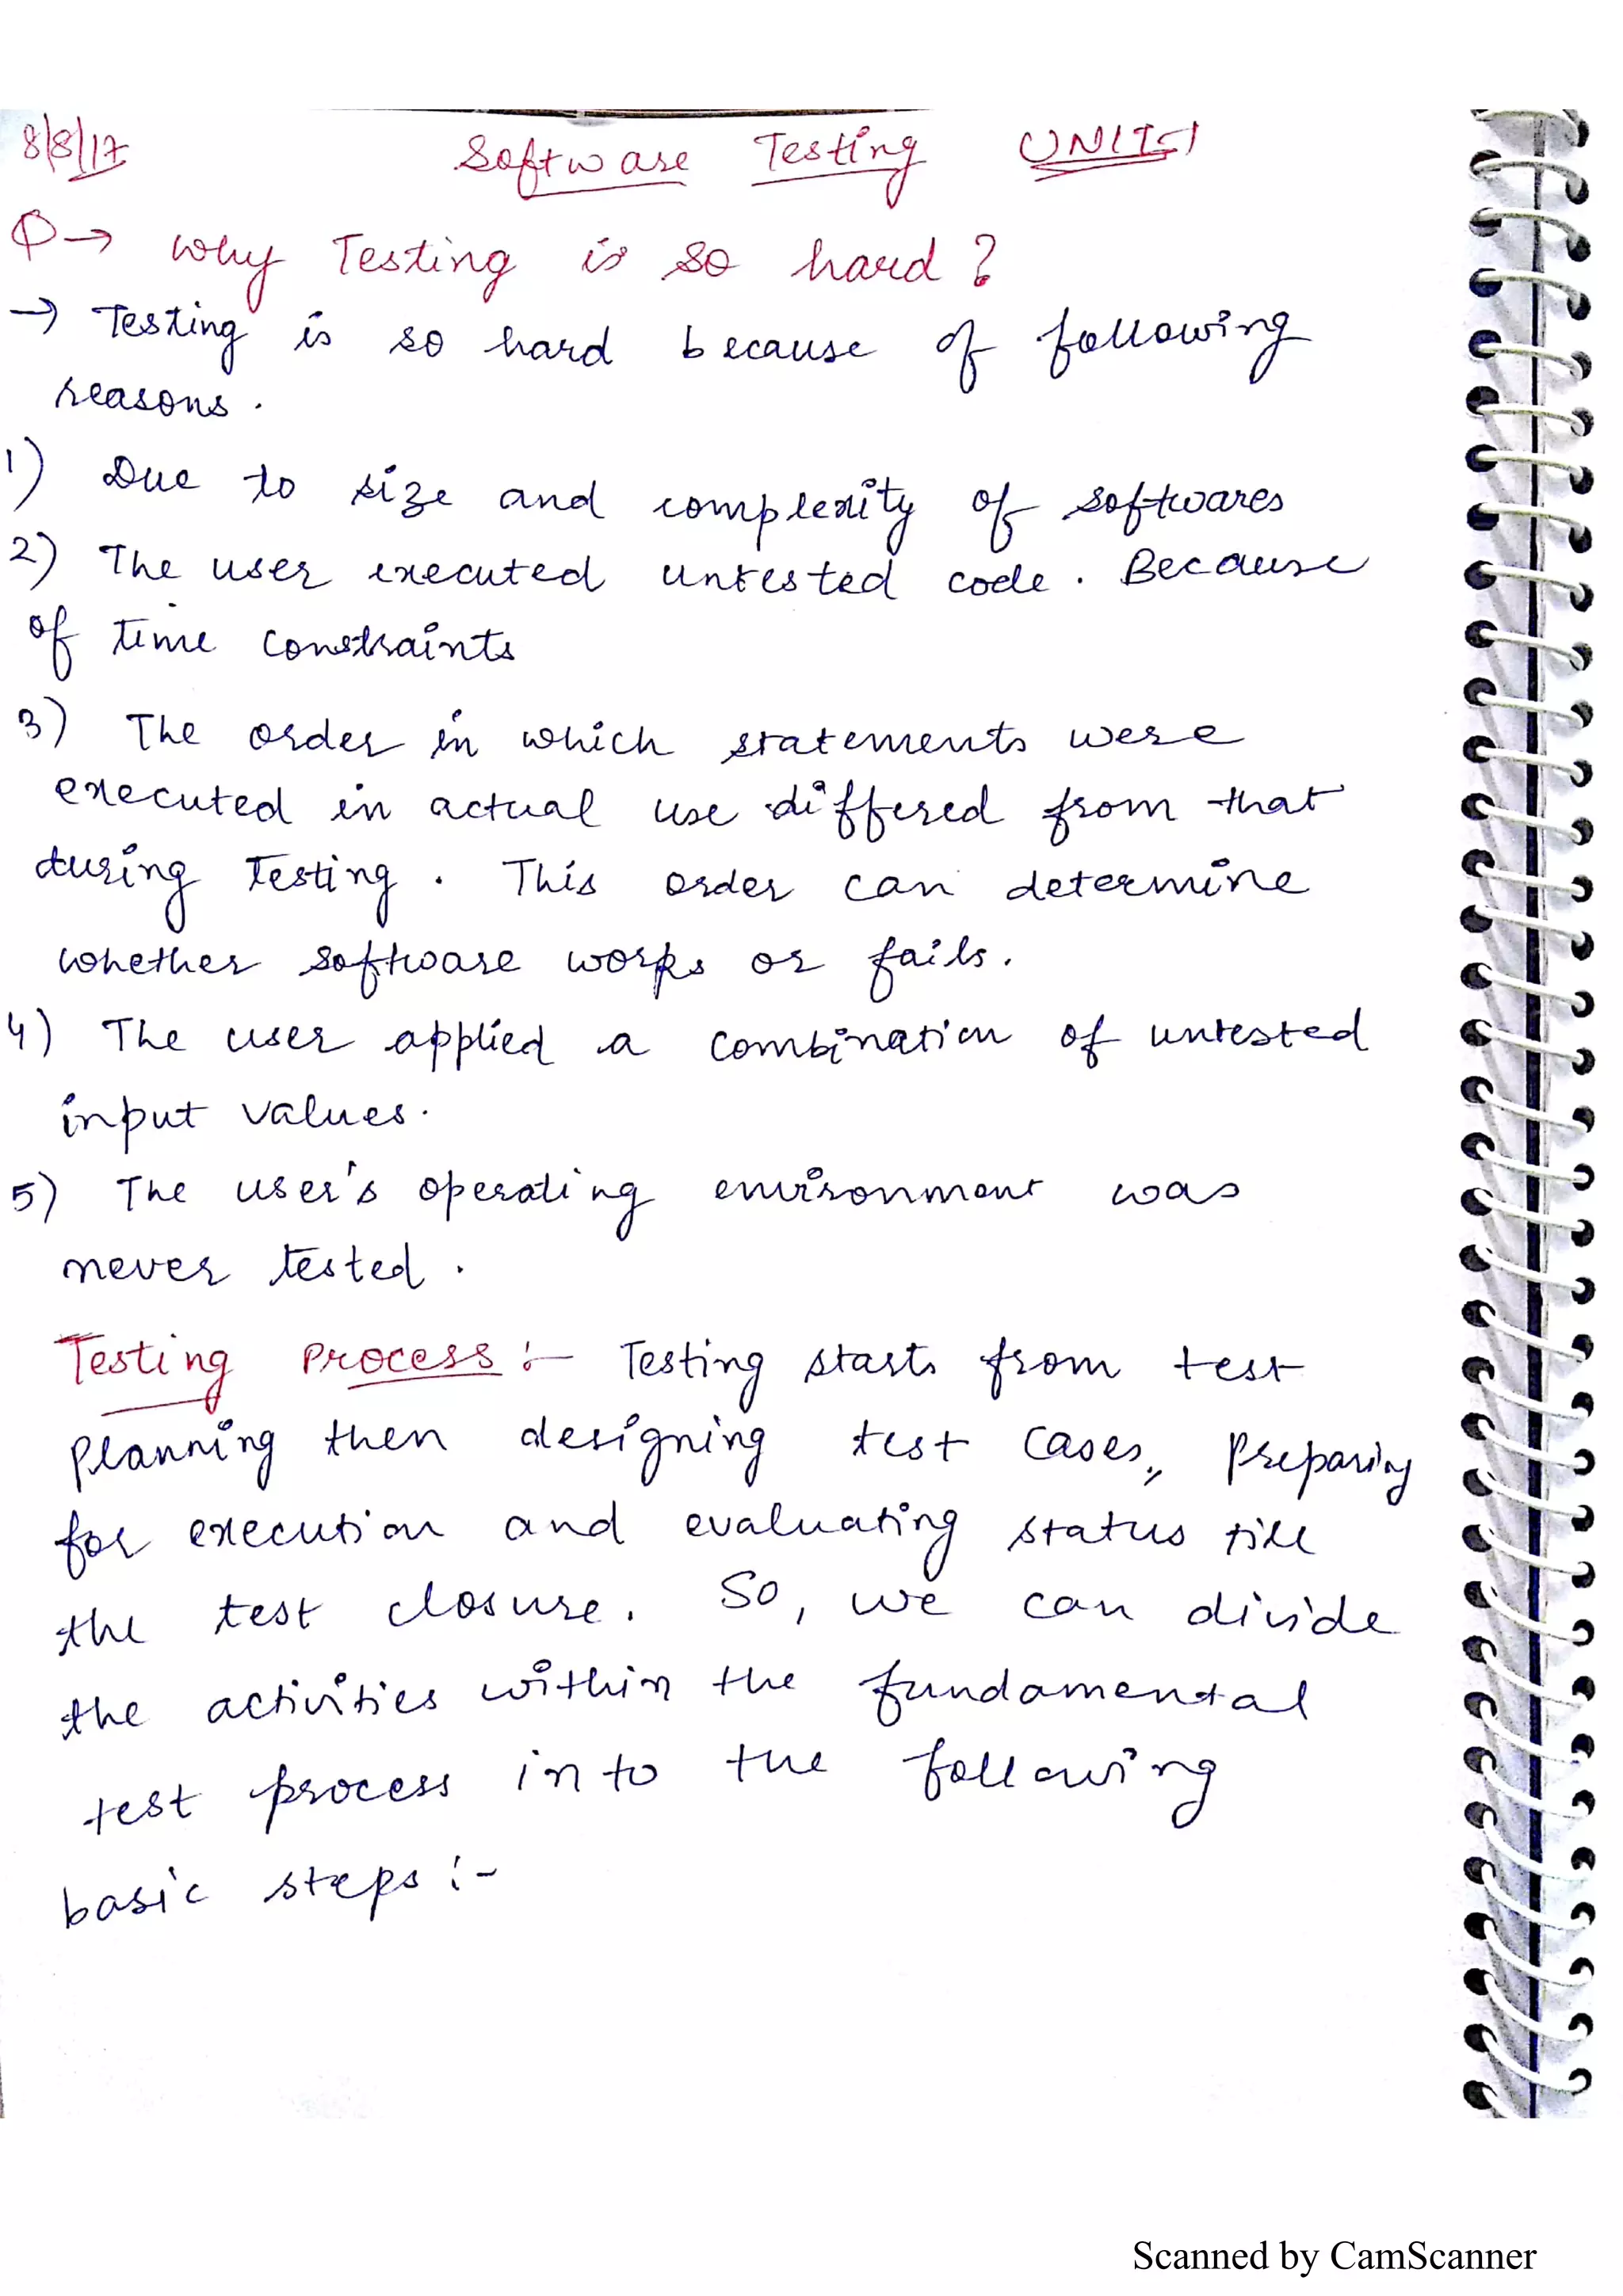 8/8/17 Software Testing UNIT-1
Q→ Why Testing is so hard?
→ Testing is so hard because of following
reasons.
1) Due to size and complexity of softwares
2) The user executed untested code. Because
of time constraints
3) The order in which statements were
executed in actual use differed from that
during Testing. This order can determine
whether software works or fails.
4) The user applied a combination of untested
input values.
5) The user's operating environment was
never tested.
Testing Process:- Testing starts from test
planning then designing test cases, Preparing
for execution and evaluating status till
the test closure. So, we can divide
the activities within the fundamental
test process into the following
basic steps:-
Scanned by CamScanner